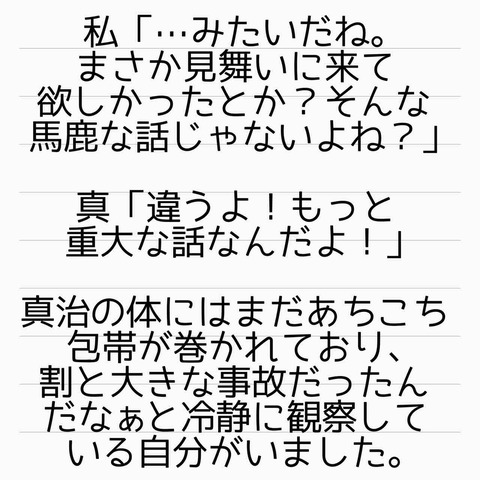 私「…みたいだね。
まさか見舞いに来て
欲しかったとか？そんな
馬鹿な話じゃないよね？」
真「違うよ！もっと
重大な話なんだよ！」
真治の体にはまだあちこち
包帯が巻かれており、
割と大きな事故だったん
だなぁと冷静に観察して
いる自分がいました。